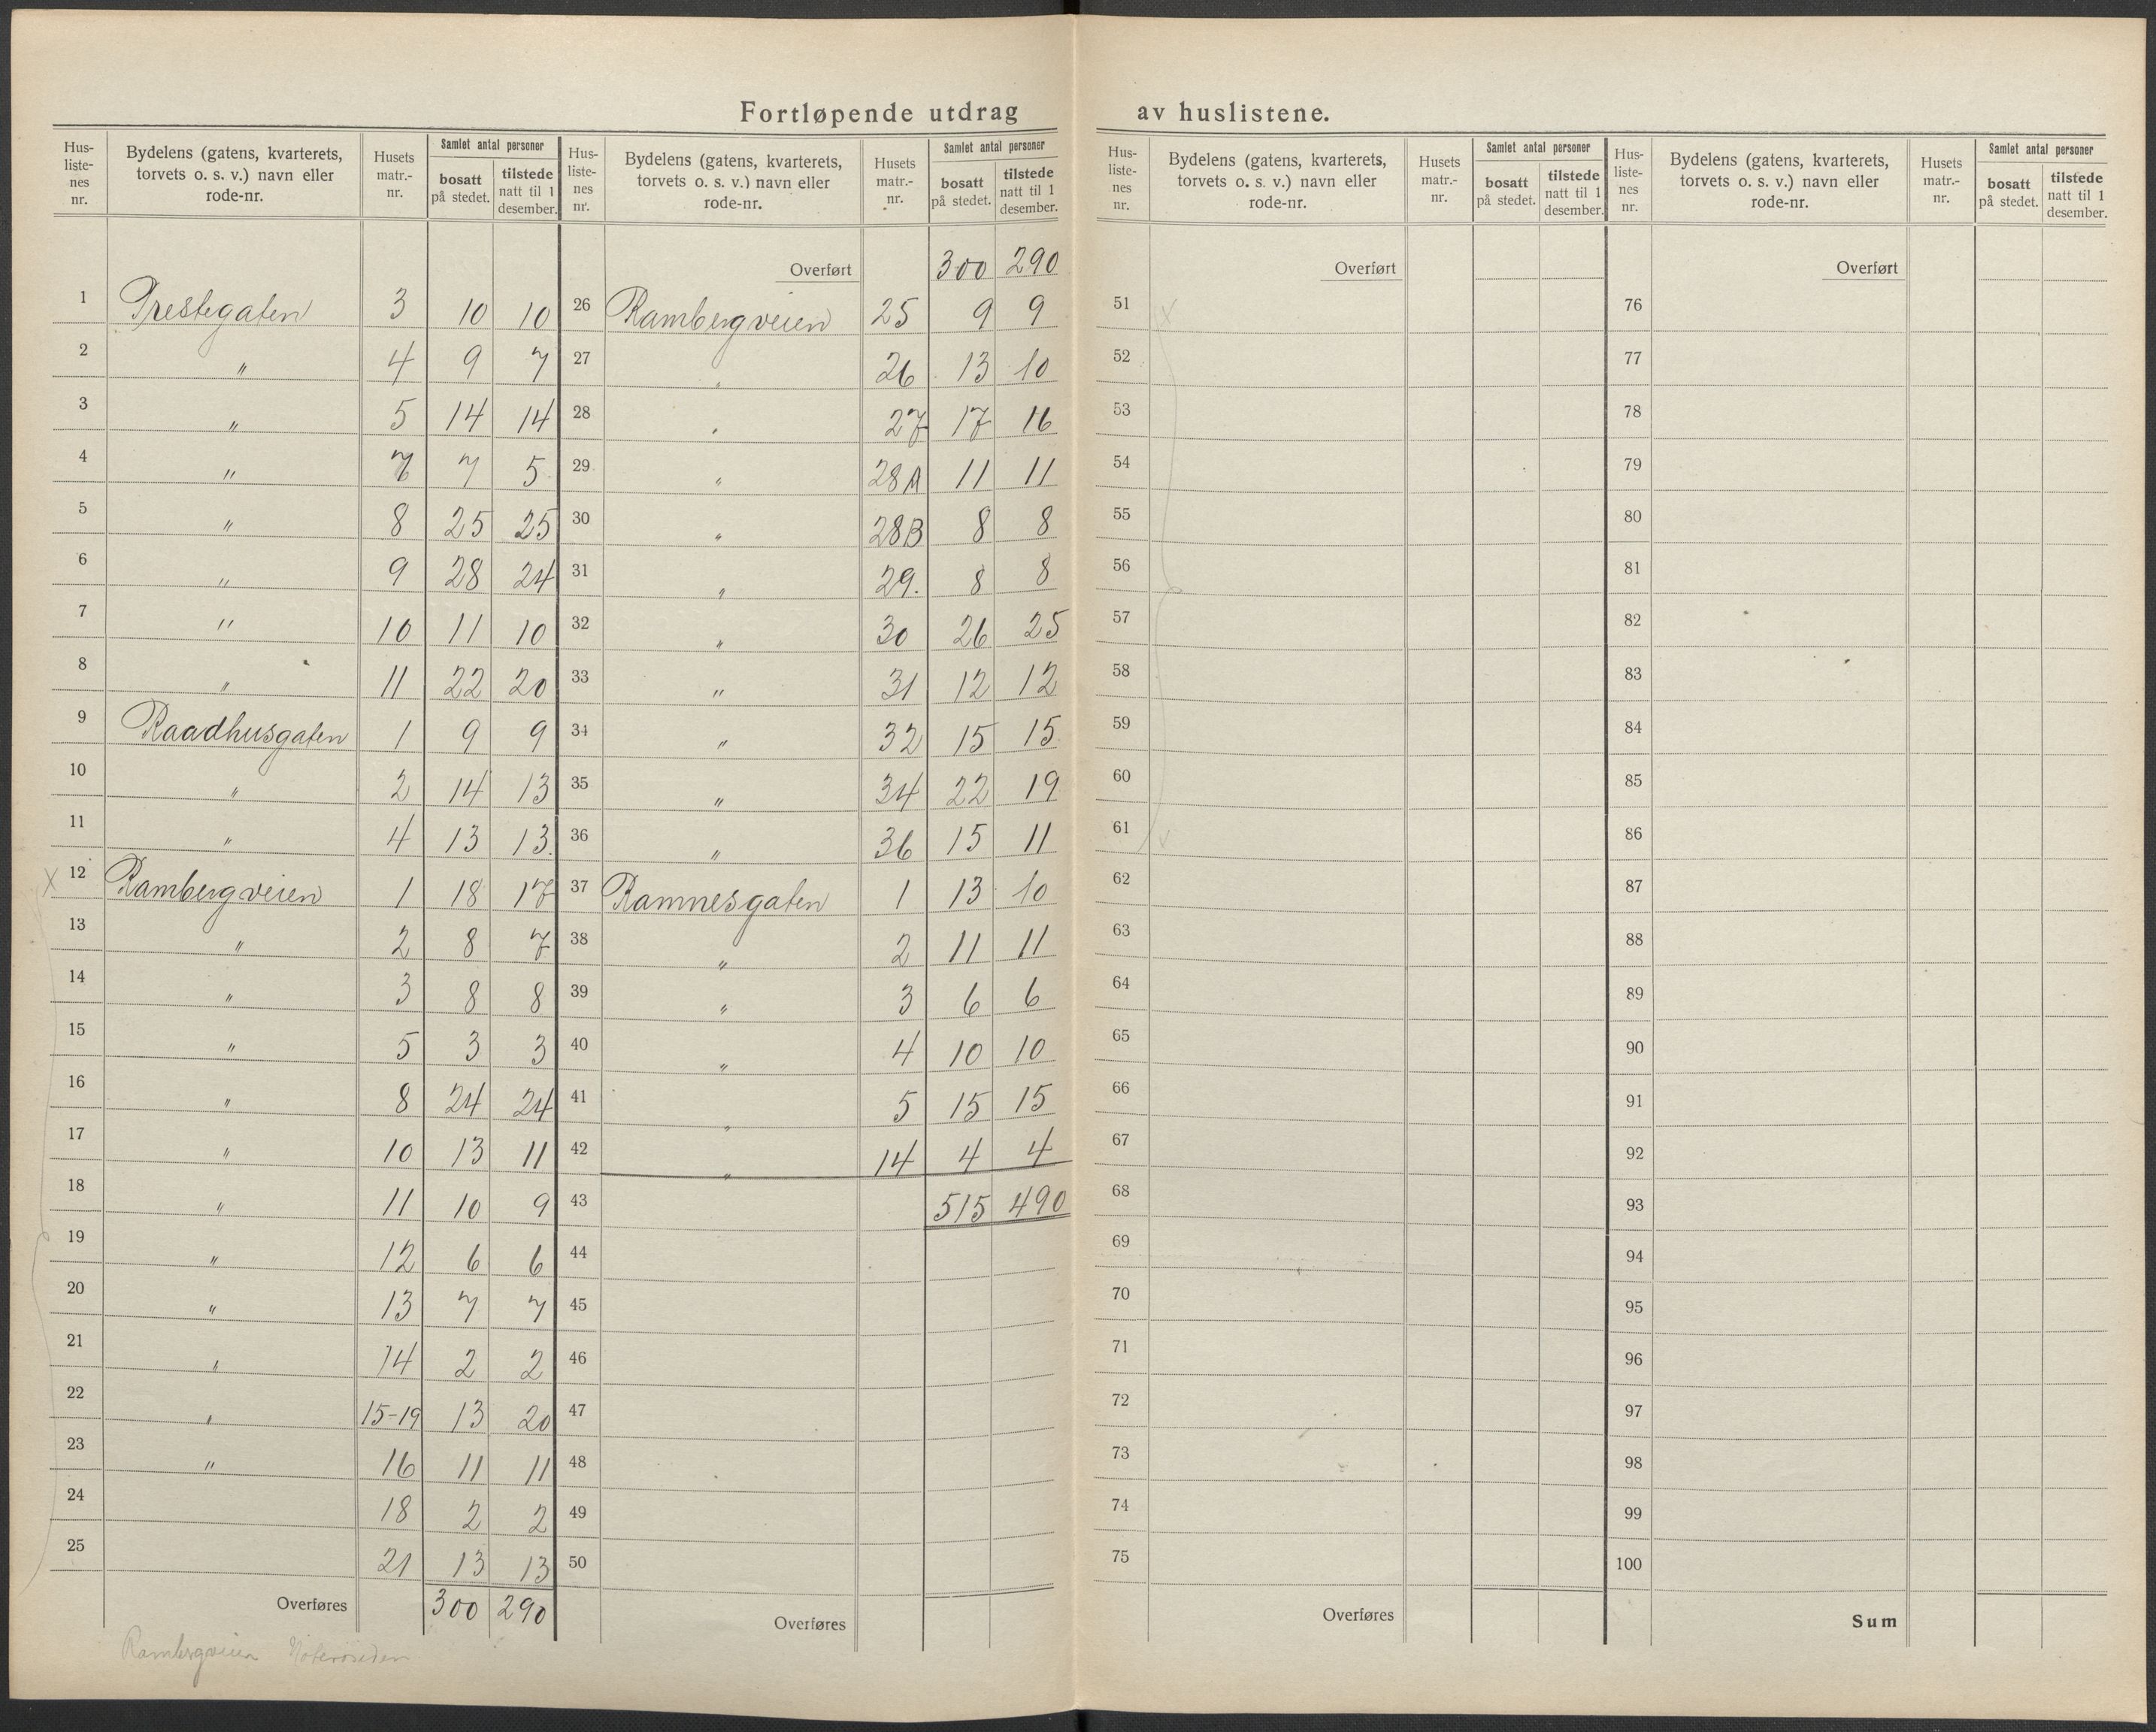 Fortløpende utdrag av huslistene.
Hus-liste-nes nr. | Bydelens (gatens, kvarterets, torvets o. s. v.) navn eller rode-nr. | Husets matr.-nr. | Samlet antal personer bosatt på stedet. | tilstede natt til 1 desember.
1 Prestegaten 3 10 10
2 " 4 9 7
3 " 5 14 14
4 " 7 7 5
5 " 8 25 25
6 " 9 28 24
7 " 10 11 10
8 " 11 22 20
9 Raadhusgaten 1 9 9
10 " 2 14 13
11 " 4 13 13
X 12 Rambergveien 1 18 17
13 " 2 8 7
14 " 3 8 8
15 " 5 3 3
16 " 8 24 24
17 " 10 13 11
18 " 11 10 9
19 " 12 6 6
20 " 13 7 7
21 " 14 2 2
22 " 15-19 13 20
23 " 16 11 11
24 18 2 2
25 21 13 13
Overføres 300 290
Rambergveien
Hus-liste-nes nr. | Bydelens (gatens, kvarterets, torvets o. s. v.) navn eller rode-nr. | Husets matr.-nr. | Samlet antal personer bosatt på stedet. | tilstede natt til 1 desember.
Overført 300 290
26 Rambergveien 25 9 9
27 " 26 13 10
28 " 27 17 16
29 " 28A 11 11
30 " 28B 8 8
31 " 29. 8 8
32 " 30 26 25
33 " 31 12 12
34 " 32 15 15
35 " 34 22 19
36 " 36 15 11
37 Ramnesgaten 1 13 10
38 " 2 11 11
39 " 3 6 6
40 " 4 10 10
41 " 5 15 15
42 " 14 4 4
43 515 490
44
45
46
47
48
49
50
Overføres
Hus-liste-nes nr. | Bydelens (gatens, kvarterets, torvets o. s. v.) navn eller rode-nr. | Husets matr.-nr. | Samlet antal personer bosatt på stedet. | tilstede natt til 1 desember.
Overført
51
52
53
54
55
56
57
58
59
60
61
62
63
64
65
66
67
68
69
70
71
72
73
74
75
Overføres
Hus-liste-nes nr. | Bydelens (gatens, kvarterets, torvets o. s. v.) navn eller rode-nr. | Husets matr.-nr. | Samlet antal personer bosatt på stedet. | tilstede natt til 1 desember.
Overført
76
77
78
79
80
81
82
83
84
85
86
87
88
89
90
91
92
93
94
95
96
97
98
99
100
Sum